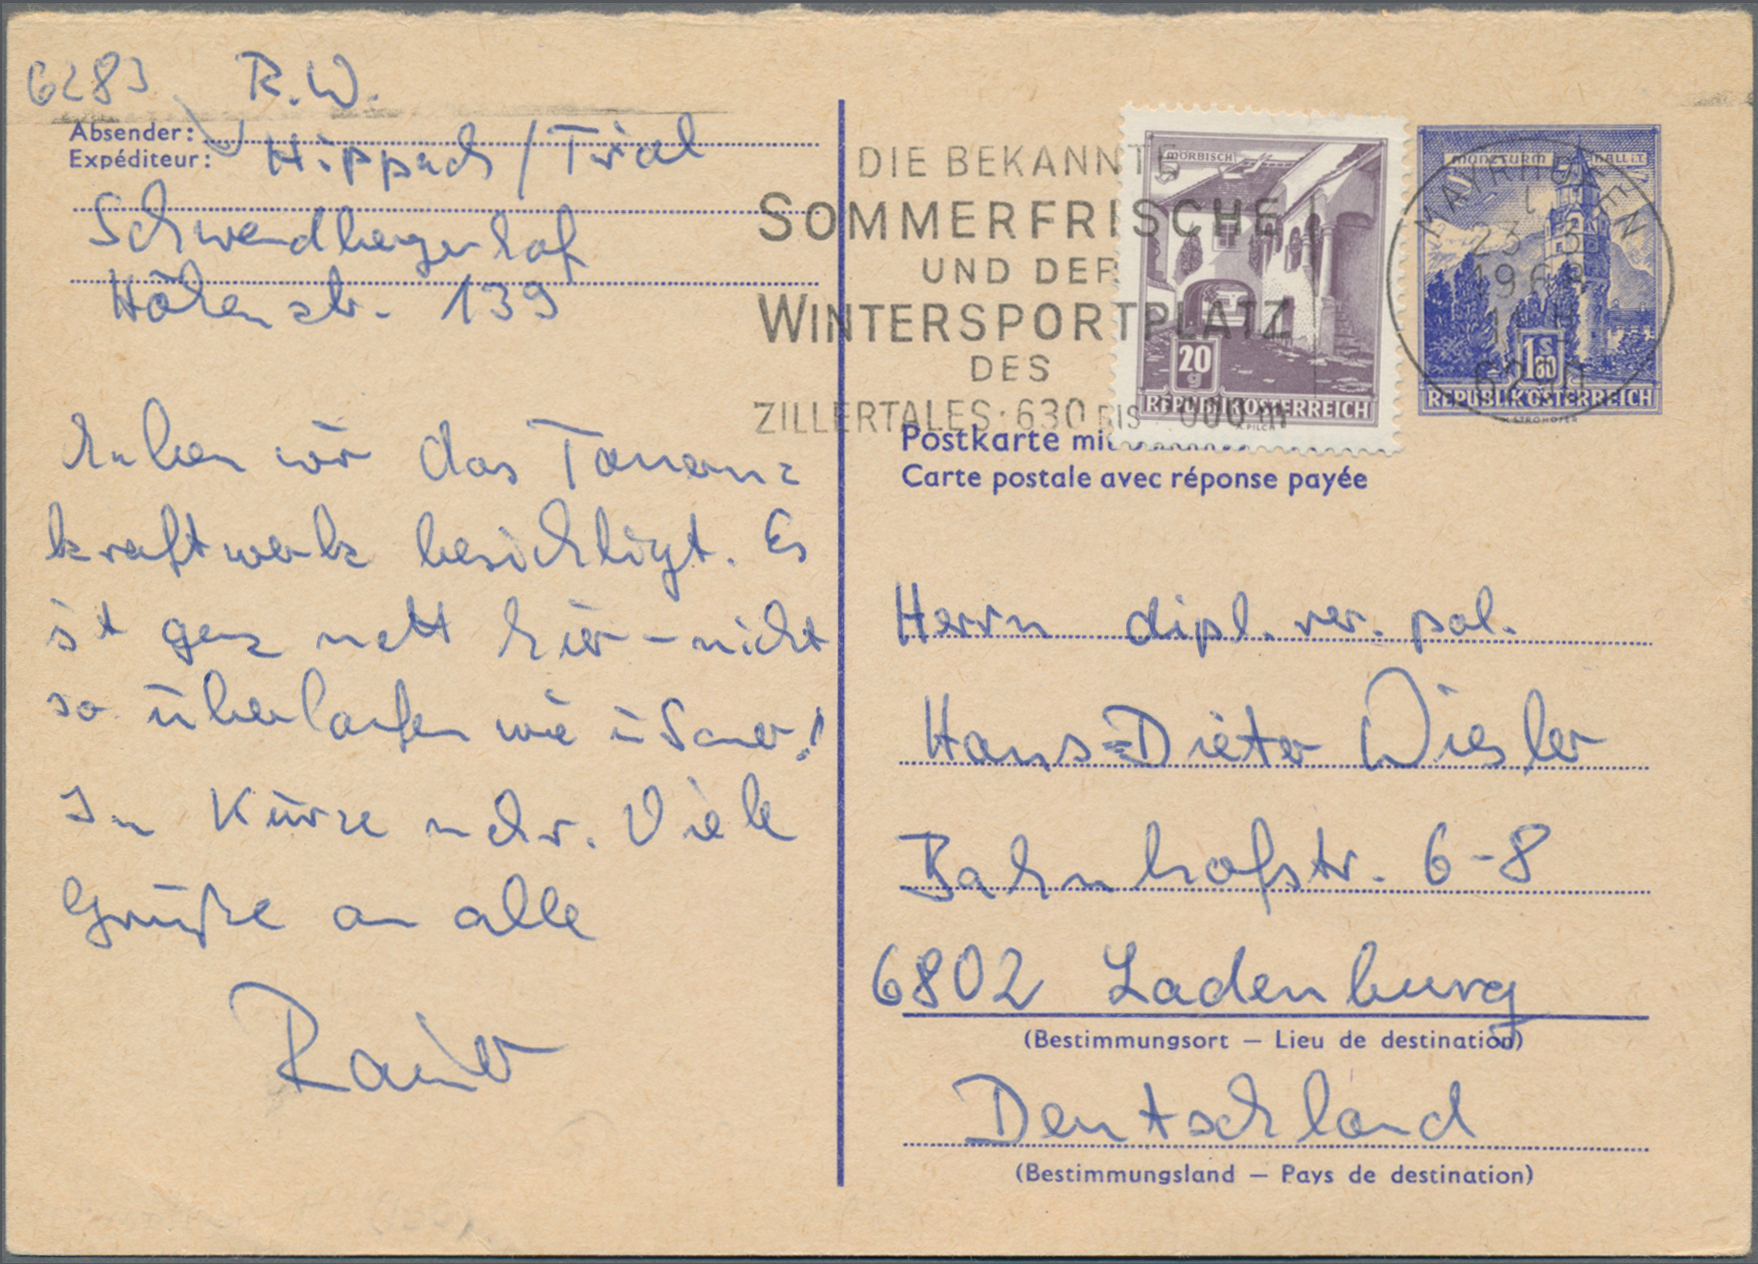 6283 R.W.
Absender:
Expéditeur:
Hippach / Tirol
Schwendbergerhof
Höhenstr. 139
haben wir das Tauern=
kraftwerk besichtigt. Es
ist ganz nett hier - nicht
so überlaufen wie in
In Kürze mehr. Viele
Grüße an alle
Rainer
DIE BEKANNTE
SOMMERFRISCHE
UND DER
WINTERSPORTPLATZ
DES
ZILLERTALES · 630 BIS 000 m
MÖRBISCH
20
g
REPUBLIK ÖSTERREICH
A. PILCH
MÜNZTURM HALL i.T.
1 S 80
REPUBLIK ÖSTERREICH
MAYRHOFEN
23 3
196
6290
Postkarte mit
Carte postale avec réponse payée
Herrn dipl. rer. pol.
Hans=Dieter Wiesler
Bahnhofstr. 6-8
6802 Ladenburg
(Bestimmungsort — Lieu de destination)
Deutschland
(Bestimmungsland — Pays de destination)